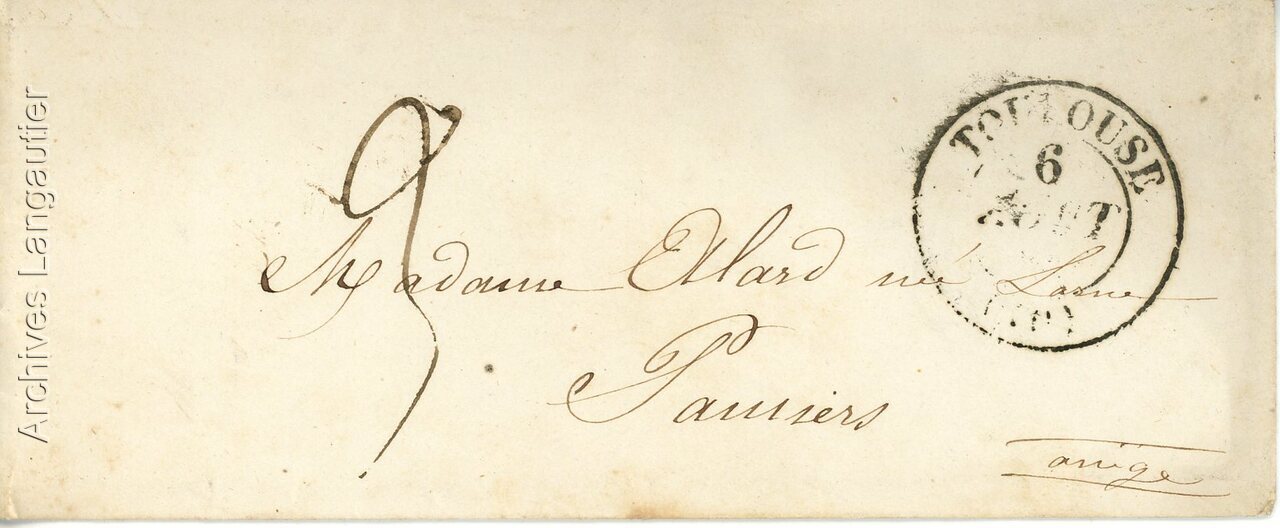 Archives Langautier
TOULOUSE
6
AOUT
Madame Alard né Lasne
Pamiers
ariège